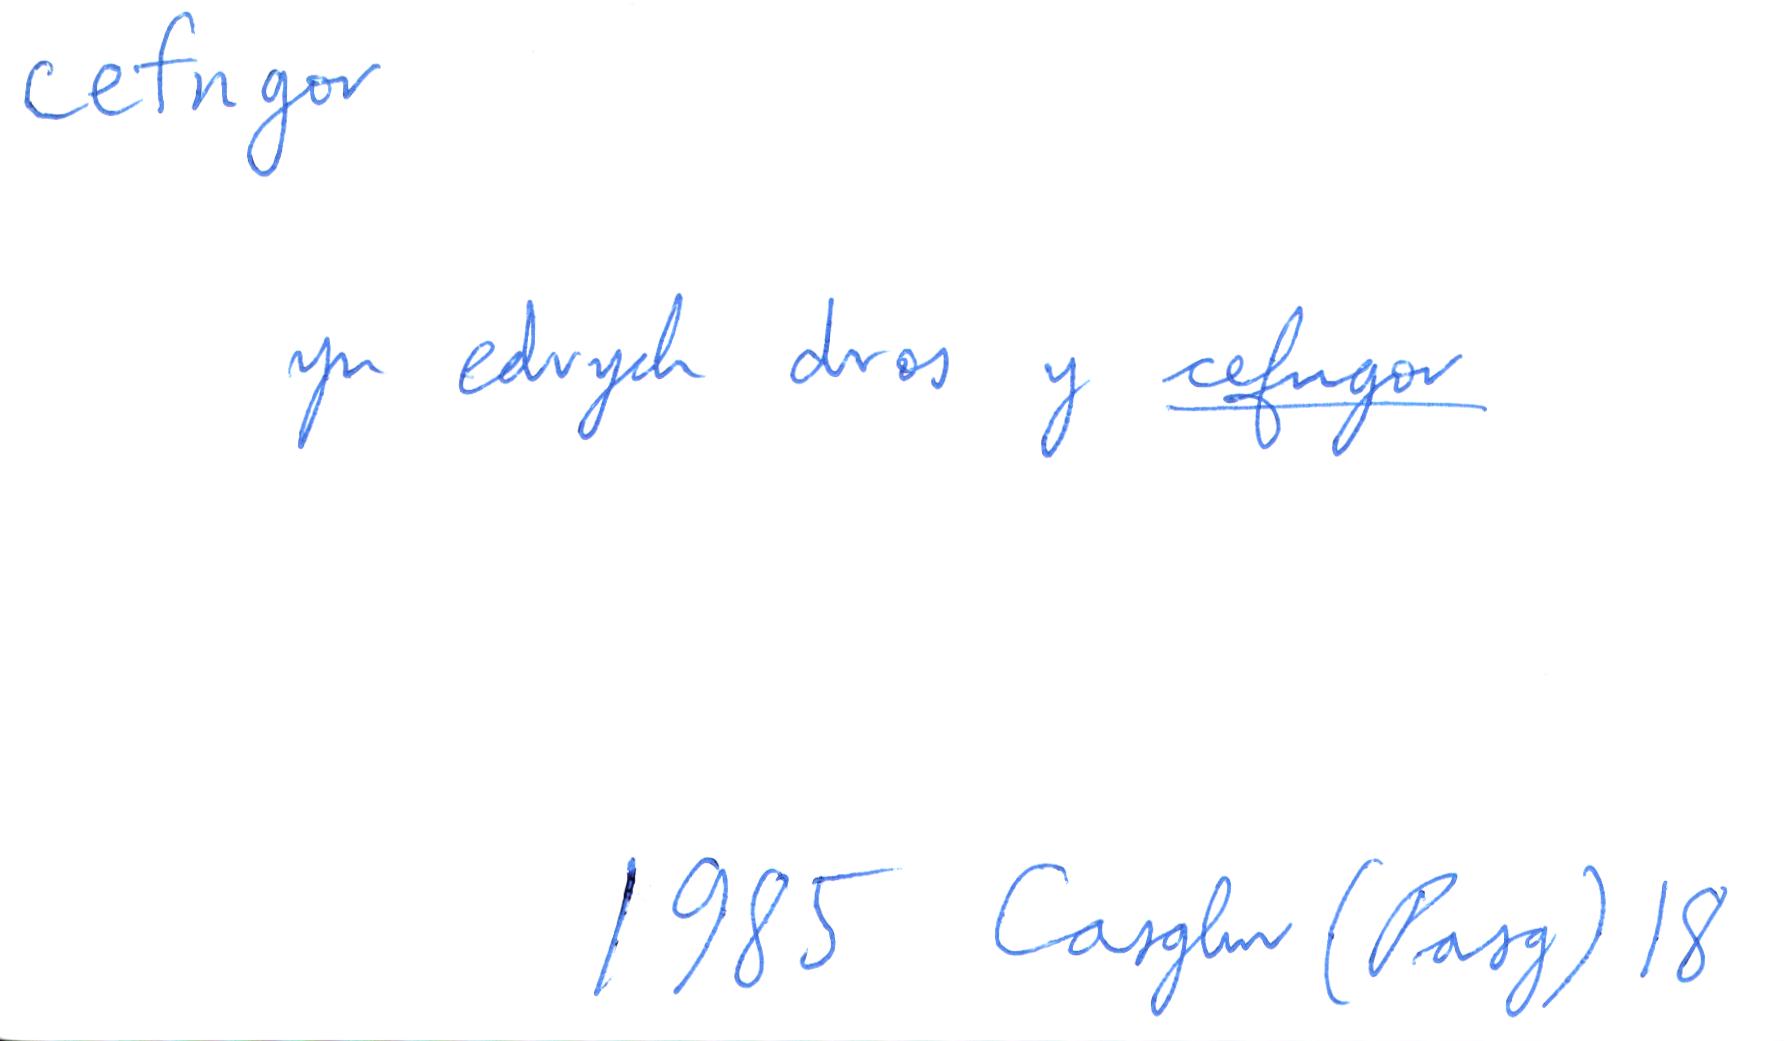 cefngor
yn edrych dros y cefngor
1985 Casglwr (Pasg) 18